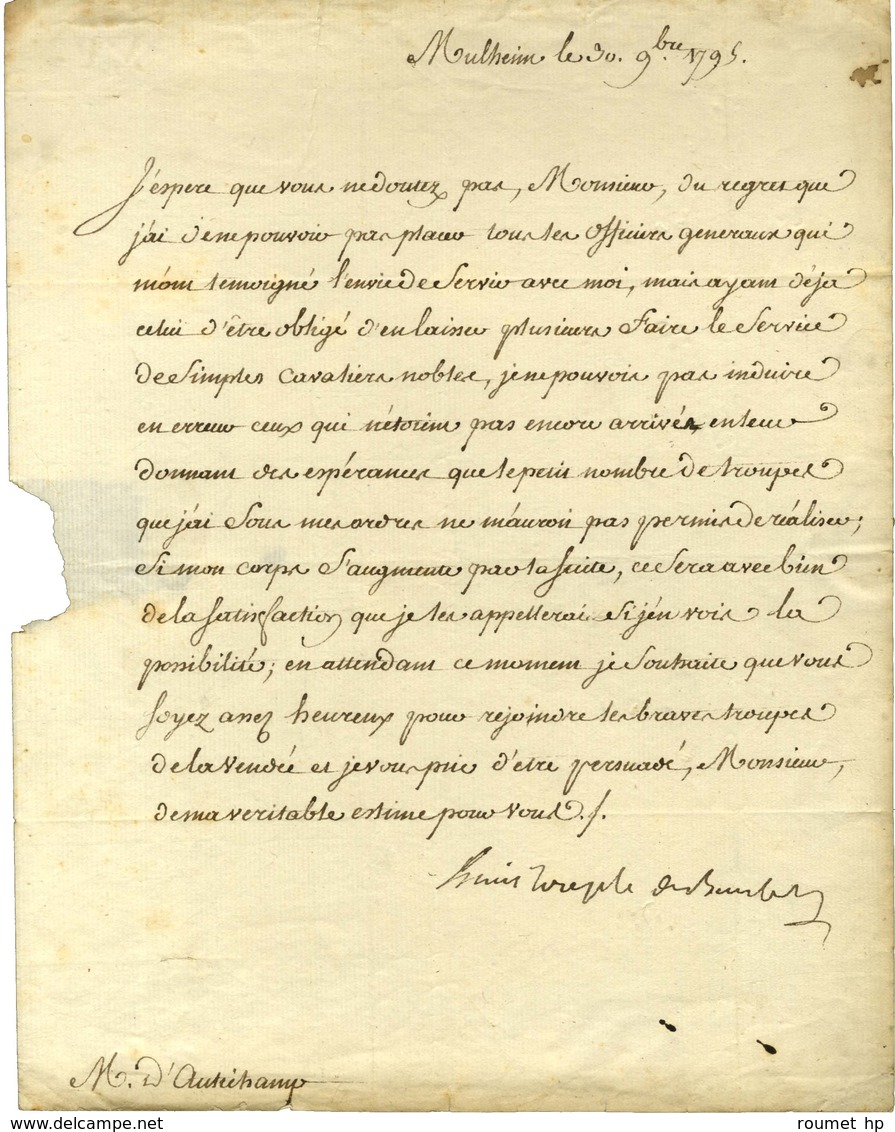 Mulheim le 30. 9bre 1795.
J'espere que vous ne doutez pas, Monsieur, du regret que
j'ai d'en e pouvoir pas placer tous les officiers generaux qui
m'ont temoigné l'envie de Servir avec moi, mais ayant déja
celui d'être obligé d'en laisser plusieurs faire le Service
de Simples Cavaliers nobles, je ne pouvois pas induire
en erreur ceux qui n'étoient pas encore arrivés, en leur
donnant des espérances que le petit nombre de troupes
que j'ai Sous mes ordres ne m'auroit pas permis de réaliser;
Si mon corps S'augmente par la suite, ce Sera avec bien
de la satisfaction que je les appellerai Si j'en vois la
possibilité; en attendant ce moment je Souhaite que vous
soyez assez heureux pour rejoindre les braves troupes
de la Vendée et je vous prie d'être persuadé, Monsieur,
de ma veritable estime pour vous ./.
Louis Joseph de Bourbon
M. D'Autichamp
roumet hp